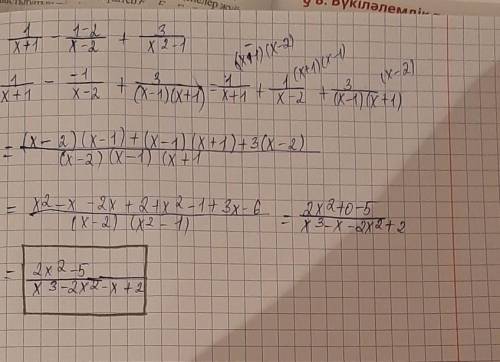 8. Бүкіләлемдік
1/(x+1) - (1-2)/(x-2) + 3/(x²-1)
1/(x+1) - (-1)/(x-2) + 3/((x-1)(x+1)) = 1/(x+1) ^(x-1)(x-2) + 1/(x-2) ^(x+1)(x-1) + 3/((x-1)(x+1)) ^(x-2)
= ((x-2)(x-1)+(x-1)(x+1)+3(x-2))/((x-2)(x-1)(x+1
= (x²-x-2x+2+x²-1+3x-6)/((x-2)(x²-1)) = (2x²+0-5)/(x³-x-2x²+2)
= (2x²-5)/(x³-2x²-x+2)